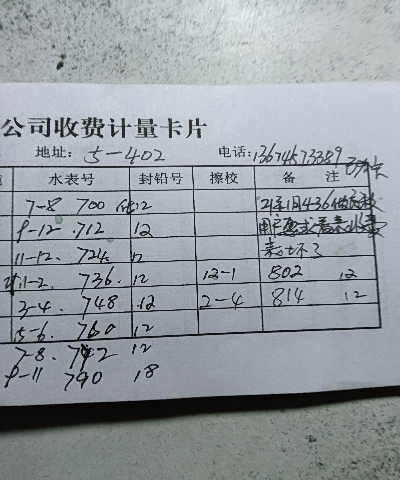 公司收费计量卡片
地址: 5-402 电话: 13674573389
水表号 封铅号 擦校 备 注
7-8 700 12
9-12 712 12 用户要求看表收费
11-12 724 12 表坏了
1-2 736 12 12-1 802 12
3-4 748 12 2-4 814 12
5-6 760 12
7-8 12
9-11 790 18